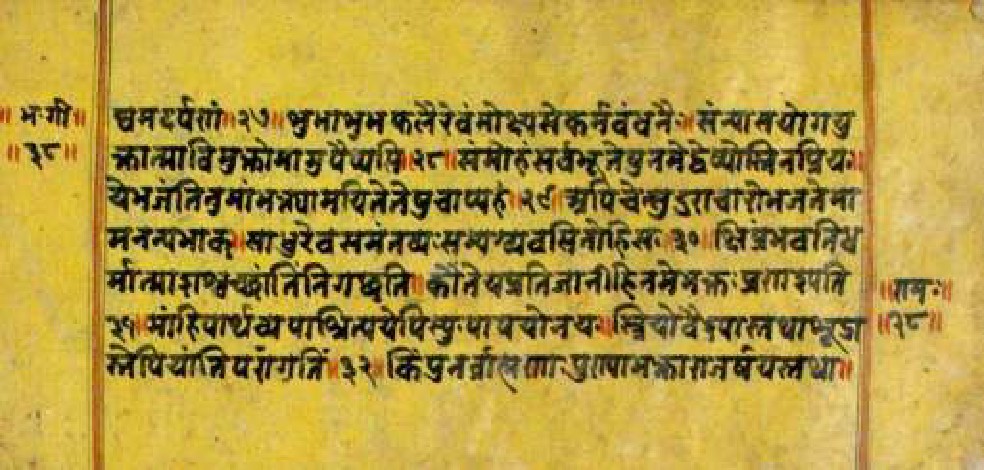 ॥भ॰गी॥
॥३८॥
ष्वमदर्पणां॥२७॥शुभाशुभफलैरेवंमोक्ष्यसेकर्मबंधनैः॥संन्यासयोगयु
क्तात्माविमुक्तोमामुपैष्यसि॥२८॥समोहंसर्वभूतेषुनमेद्वेष्योस्तिनप्रियः॥
येभजंतितुमांभक्त्यामयितेतेषुचाप्यहं॥२९॥अपिचेत्सुऽराचारोभजतेमा
मनन्यभाक्॥साधुरेवसमंतव्यःसम्यग्व्यवसितोहिसः॥३०॥क्षिप्रंभवतिध
र्मात्माशश्वच्छांतिंनिगच्छति॥कौंतेयप्रतिजानीहिनमेभक्तःप्रणश्यति
३१॥मांहिपार्थव्यपाश्रित्ययेपिस्युःपापयोनयः॥स्त्रियोवैश्यास्तथाशूद्रा
स्तेपियांतिपरांगतिं॥३२॥किंपुनर्ब्राह्मणाःपुण्याभक्ताराजर्षयस्तथा॥
॥राम॥
॥३८॥